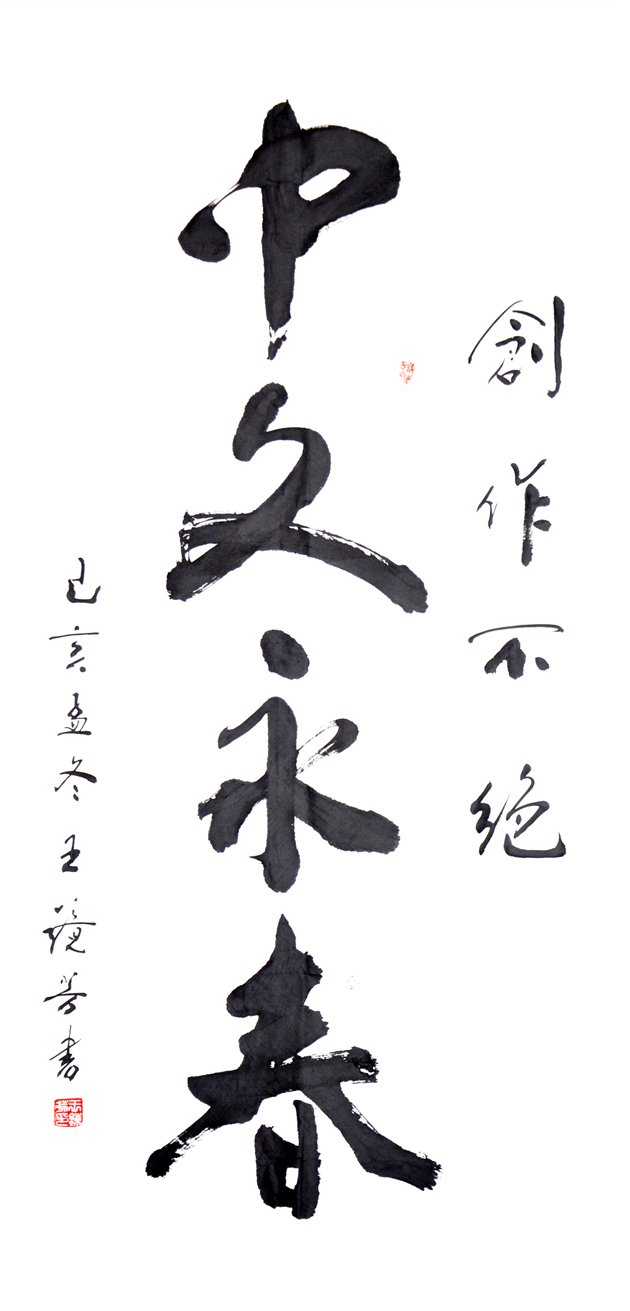 創作不絕
中文永春
己亥孟冬王鏡芬書